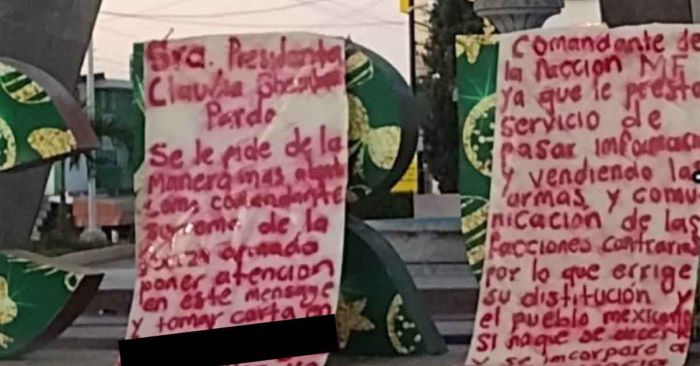 Sra. Presidenta
Claudia Sheinbaum
Pardo
Se le pide de la
manera mas atenta
como comandante
supremo de la
fuerza armado
poner atencion
en este mensage
y tomar carta en
Comandante de
la faccion MF
ya que le presto
servicio de
pasar informaci
y vendiendo la
armas y comu
nicación de las
facciones contraria
por lo que errige
su distitución y
el pueblo mexicano
si haque se
y se incorpore a